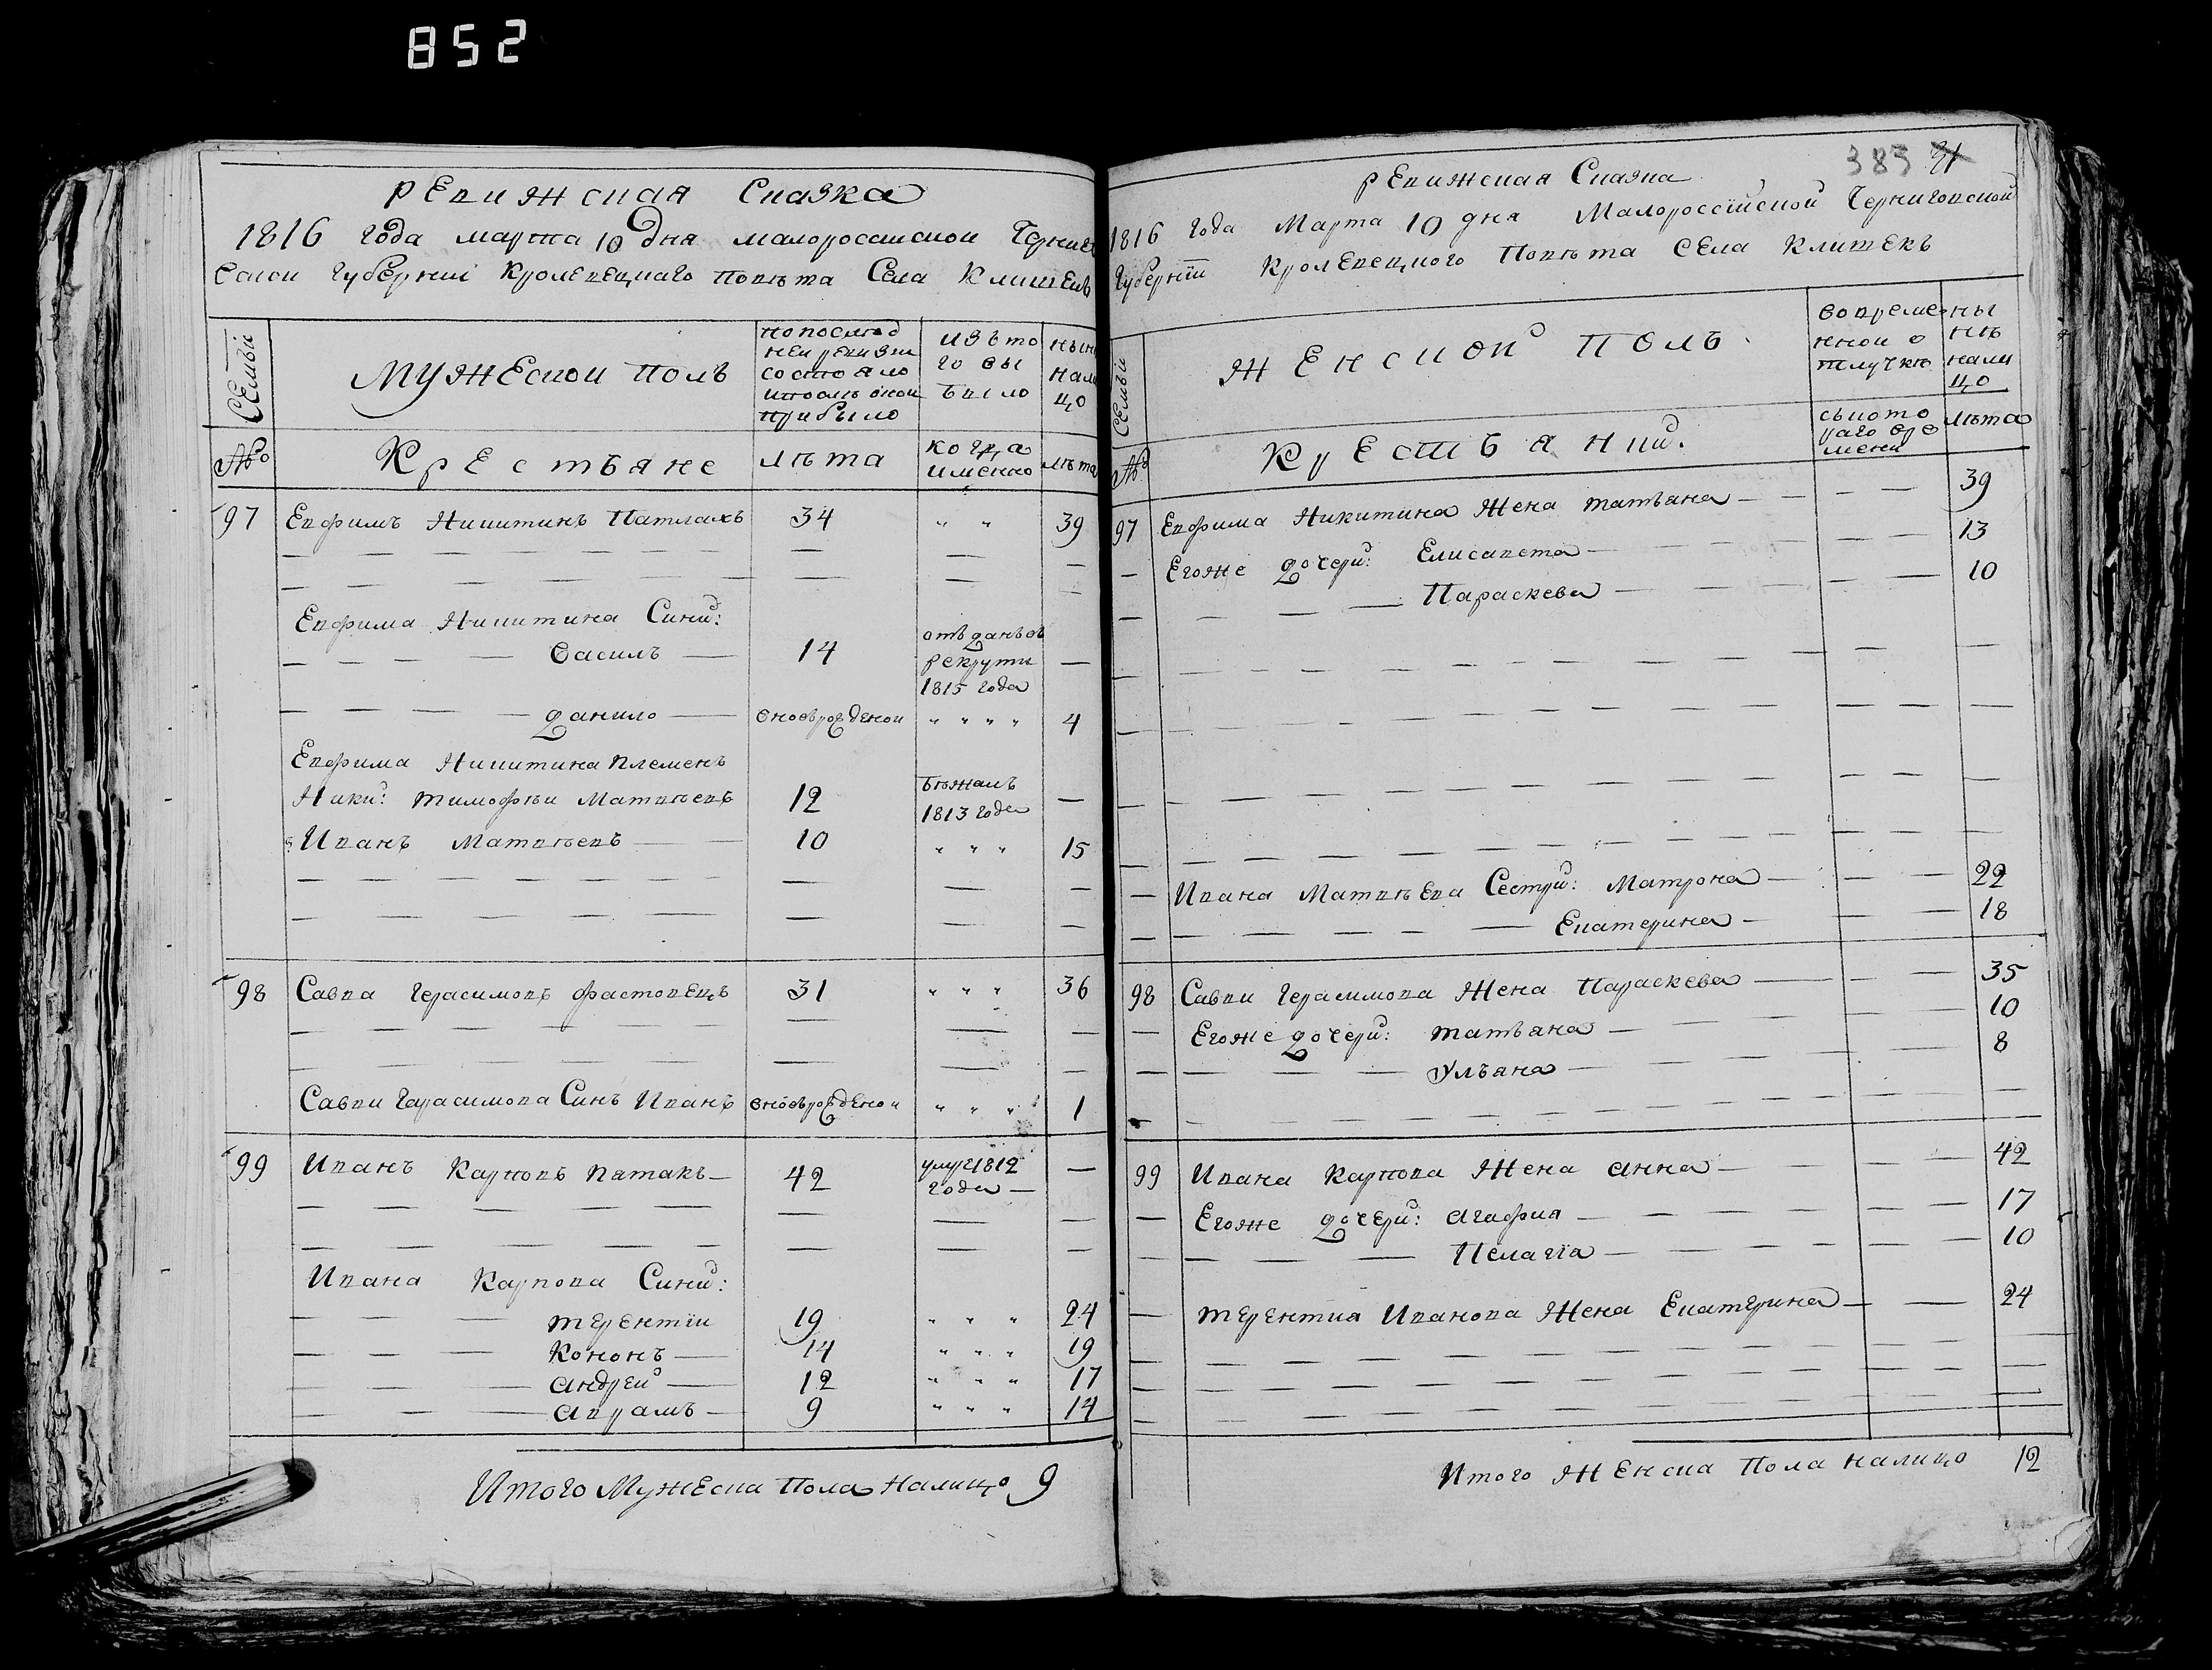 852
ревижская сказка
1816 года марта 10 дня малороссийской Черниго
вской губернии Кролевецкаго повѣта Села Клишекъ
СЕмьи
Мужеской полъ
по послѣд
ней ревизи
состояло
и послѣ оной
прибыло
изъ то
го вы
было
нын
нали
цо
№
Крестьяне
лѣта
когда
именно
лѣта
97 Евфимъ Никитинъ Патлахъ 34 " " 39
Евфима Никитина Сини:
Василь 14 отъданъ въ
рекрути
1815 года
данило вновьрожденой " " " " 4
Евфима Никитина племен
ники: тимофѣи Матвѣевъ 12 бѣжалъ
1813 года
Иванъ Матвѣевъ 10 " " " 15
98 Савва Герасимовъ фастовецъ 31 " " " 36
Савви Герасимова Синъ Иванъ вновьрожденой " " " 1
99 Иванъ Карповъ Пятакъ 42 умре 1812
года
Ивана Карпова Сини:
терентіи 19 " " " 24
Кононъ 14 " " " 19
андрей 12 " " " 17
аврамъ 9 " " " 14
Итого Мужеска Пола Налицо 9
383 31
ревижская Сказка
1816 года Марта 10 дня Малороссійской Черниговской
Губерніи Кролевецкого Повѣта Села Клишекъ
СЕмьи
Женской полъ
во време
нной о
тлучкѣ
ны
нѣ
нали
цо
№
Крестьяний.
съкото
раго вре
мени
лѣта
97 Евфима Никитина Жена татьяна 39
Егоже дочери: Елисавета 13
Параскева 10
Ивана Матвѣева Сестри: Матрона 22
Екатерина 18
98 Савви Герасимова Жена Параскева 35
Егоже дочери: татьана 10
Ульана 8
99 Ивана Карпова Жена анна 42
Егоже дочери: агафия 17
Пелагіа 10
терентия Иванова Жена Екатерина 24
Итого Женска Пола налицо 12